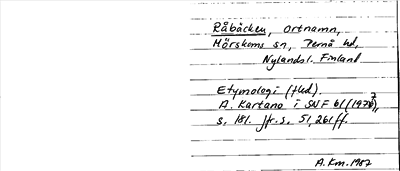 Råbäcken, ortnamn,
Mörskoms sn, Pernå hd,
Nylands l. Finland
Etymologi (fled).
A. Kartano i SNF 61 (1970),
s. 181. Jfr. s. 51, 261 ff.
A.Km. 1987